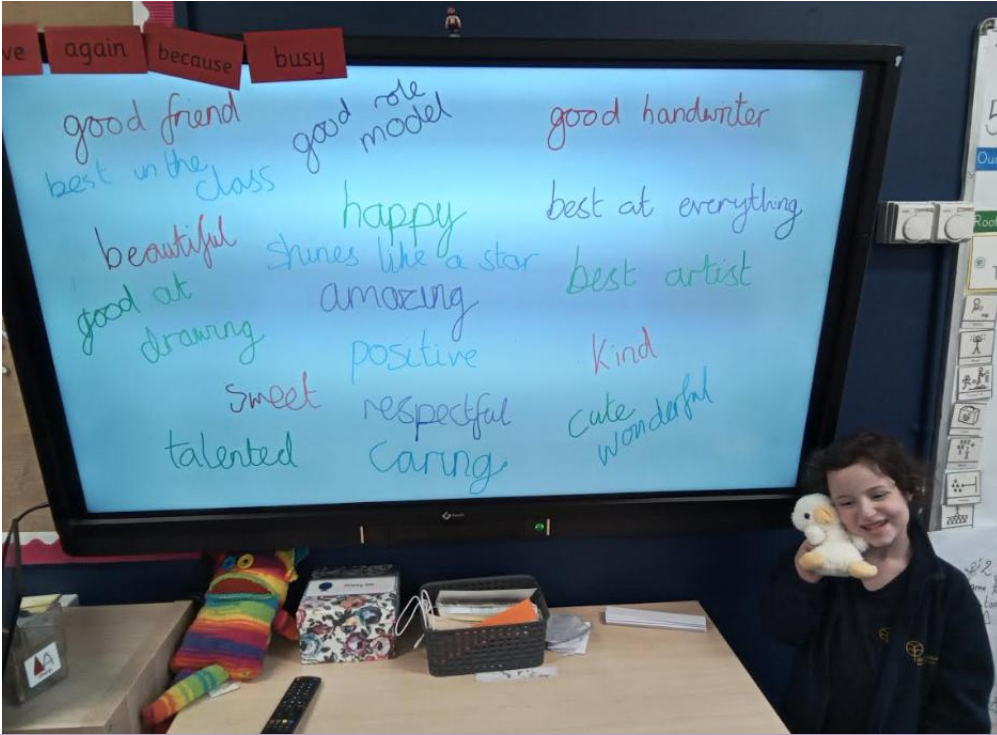 ve
again
because
busy
good friend
good role
model
good handwriter
best in the
class
happy
best at everything
beautiful
shines like a star
best artist
good at
drawing
amazing
positive
kind
sweet
respectful
cute
wonderful
talented
caring
Our